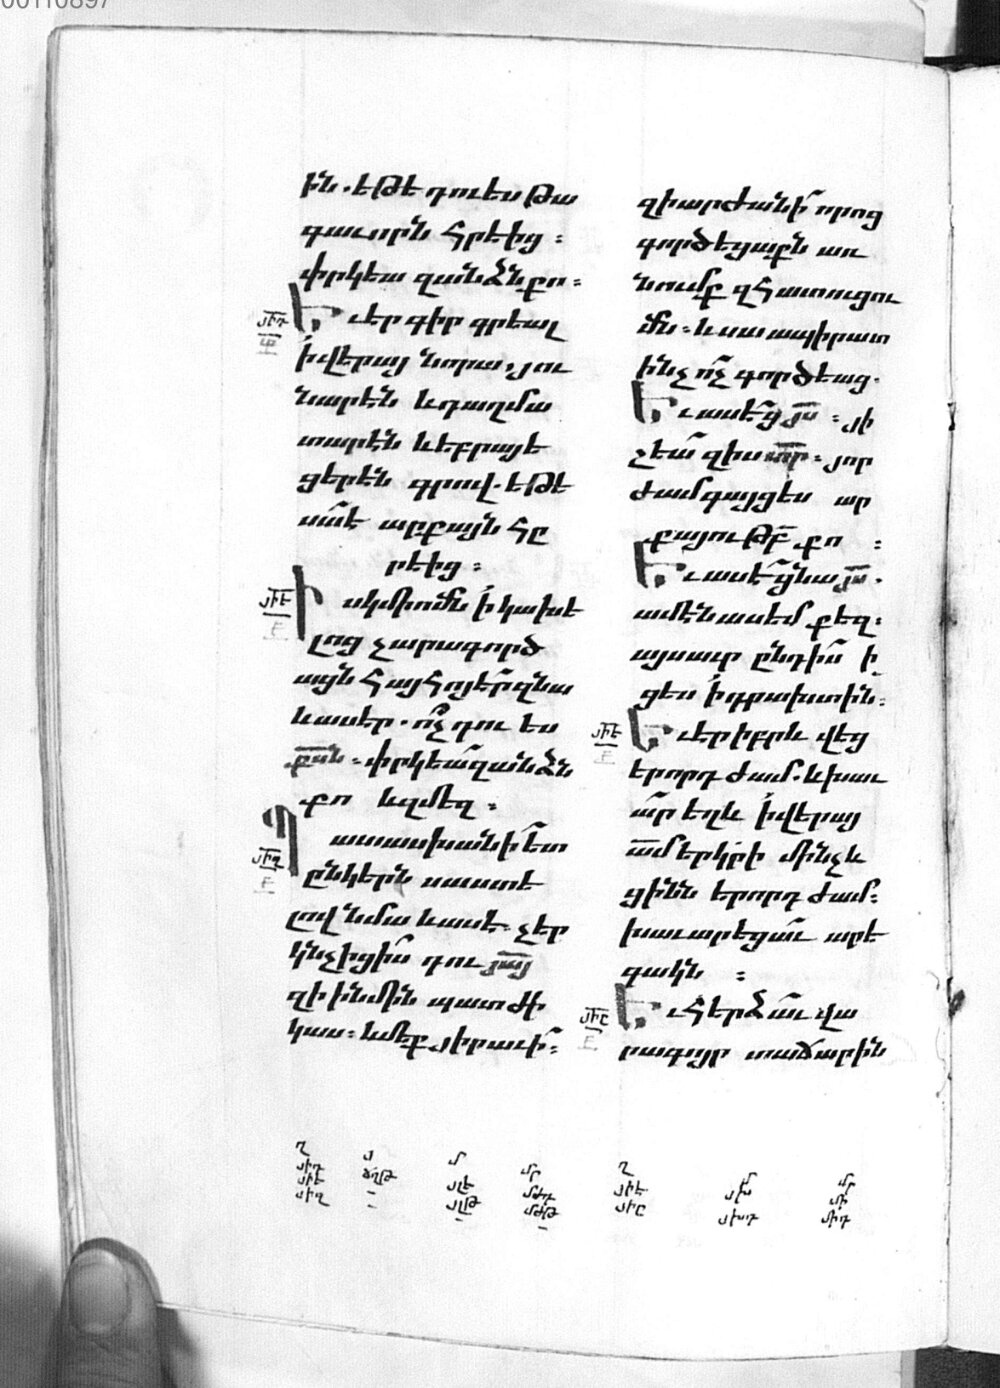 00110897
ին. եթե դու ես թա
գաւորն հրեից :
փրկեա զանձն քո :
Եւ էր գիր գրեալ
ի վերայ նորա, յու
նարէն և դաղմա
տարէն և եբրայե
ցերէն գրով. եթե
սա՛ է արքայն հը
րեից :
Իսկ միումն ի կախե
լոց չարագործ
այն հայհոյէր զնա
և ասէր. ո՛չ դու ես
քսն. փրկեա՛ զանձն
քո և զմեզ :
Պատասխանի ետ
ընկերն սաստե
լով նմա և ասէ. չեր
կնչիցիս դու յայ
զի ի նմին պատժի
կաս : և մեք յիրաւի :
զի արժանի որոց
գործեցաքն առ
նումք զհատուցու
մն : և սա ապիրատ
ինչ ո՛չ գործեաց.
Եւ ասէ ցյս : յի
շեա՛ զիս տր : յոր
ժամ գայցես ար
քայութբ քո :
Եւ ասէ ցնա յս.
ամէն ասեմ քեզ :
այսաւր ընդ իս ի
ցես ի դրախտին :
Եւ էր իբրև վեց
երորդ ժամ. և խաւ
ար եղև ի վերայ
ամ երկրի մինչև
ցինն երորդ ժամ :
խաւարեցաւ արե
գակն :
Եւ հերձաւ վա
րագոյր տաճարին